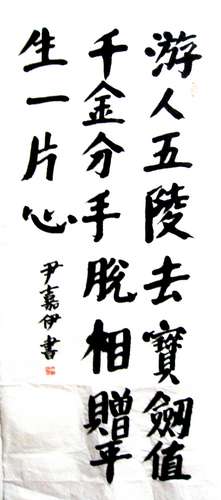 游人五陵去寶劔值
千金分手脫相贈平
生一片心
尹嘉伊書